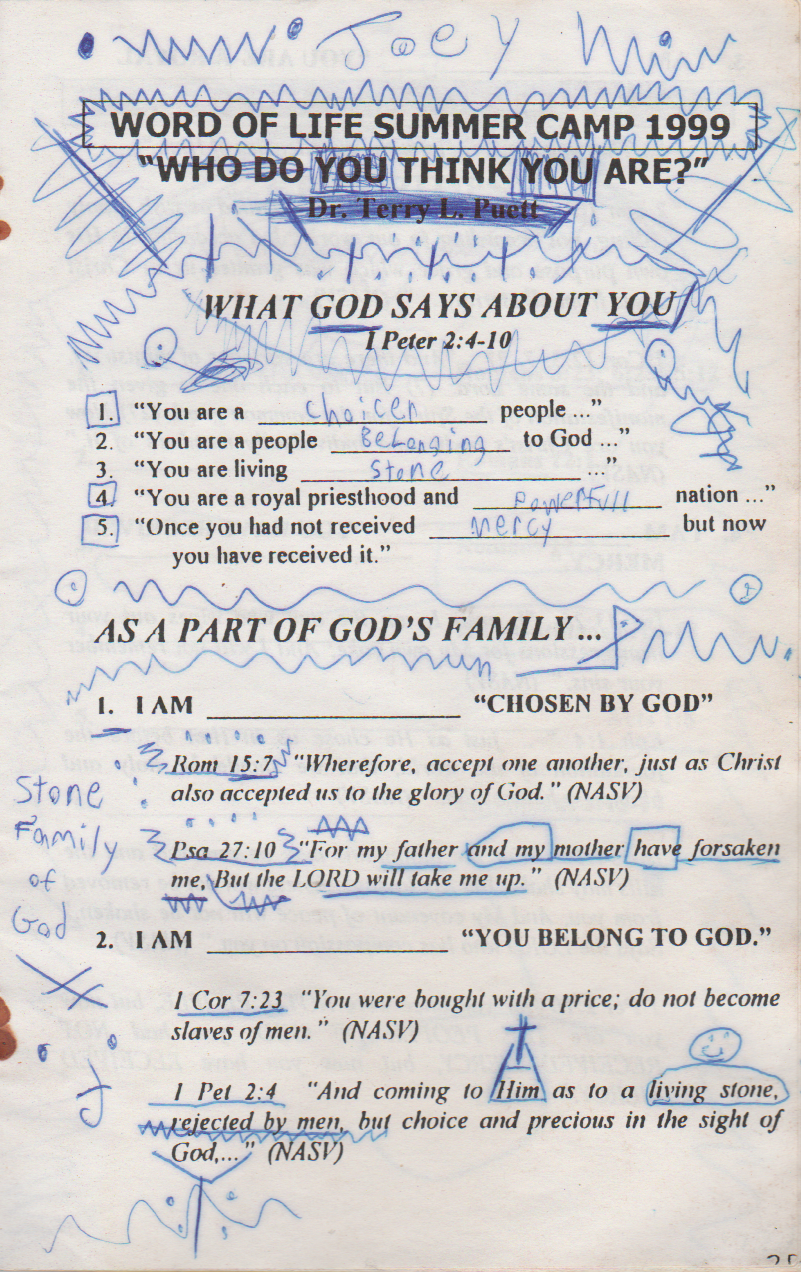 Joey
WORD OF LIFE SUMMER CAMP 1999
"WHO DO YOU THINK YOU ARE?"
Dr. Terry L. Puett
WHAT GOD SAYS ABOUT YOU
I Peter 2:4-10
1. "You are a choicen people ..."
2. "You are a people Belonging to God ..."
3. "You are living Stone ..."
4. "You are a royal priesthood and powerfull nation ..."
5. "Once you had not received Mercy but now
you have received it."
AS A PART OF GOD'S FAMILY...
1. I AM ____________ "CHOSEN BY GOD"
Rom 15:7 "Wherefore, accept one another, just as Christ
also accepted us to the glory of God." (NASV)
Stone
Family
of
God
Psa 27:10 "For my father and my mother have forsaken
me, But the LORD will take me up." (NASV)
2. I AM ____________ "YOU BELONG TO GOD."
1 Cor 7:23 "You were bought with a price; do not become
slaves of men." (NASV)
1 Pet 2:4 "And coming to Him as to a living stone,
rejected by men, but choice and precious in the sight of
God,..." (NASV)